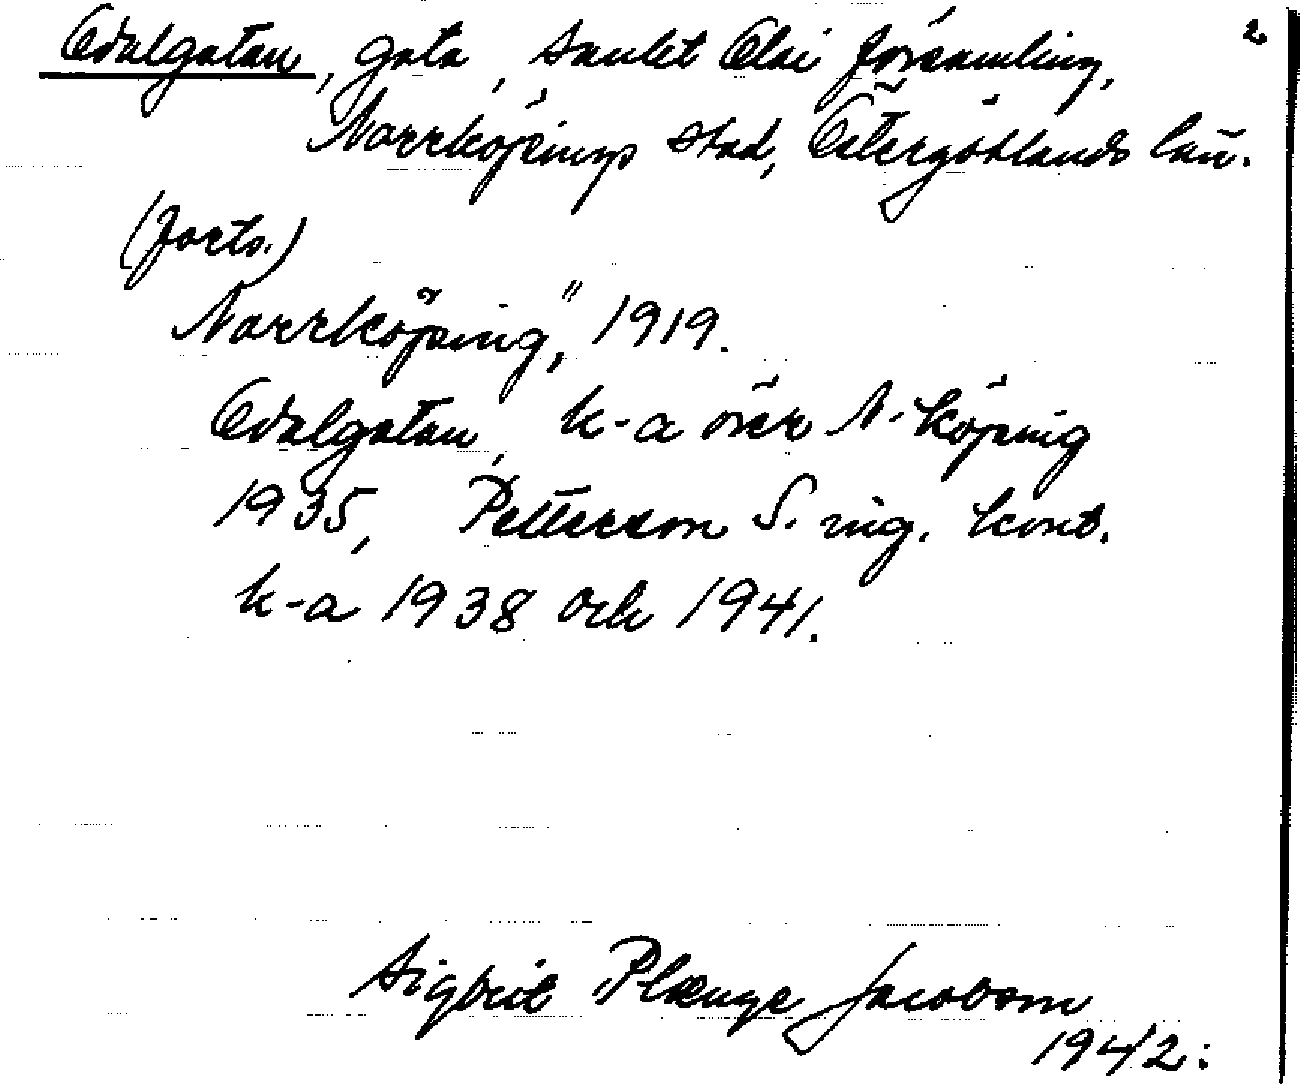 Odalgatan, gata, Sankt Olai församling, 2.
Norrköpings stad, Östergötlands län.
(forts.)
Norrköping," 1919.
Odalgatan, k-a över N-köping
1935, Petterson S. ing. kont.
k-a 1938 och 1941.
Sigbrit Plænge Jacobson
1942: